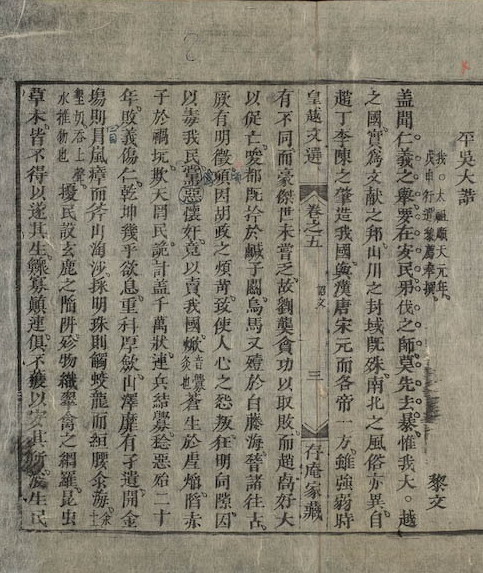 平吳大誥
我○太祖順天元年
戊申行遣黎廌奉撰 黎文
蓋聞仁義之舉要在安民弔伐之師莫先去暴惟我大○越
之國實爲文献之邦山川之封域既殊南北之風俗亦異自
趙丁李陳之肇造我國與漢唐宋元而各帝一方雖強弱時
皇越文選 卷之五 詔文 三 存庵家藏
有不同而豪傑世未嘗乏故劉龑貪功以取敗而趙卨好大
以促亡唆都既拾於鹹子關烏馬又殪於白藤海嵇諸往古
厥有明徵頃因胡政之煩苛致使人心之怨叛狂明向隙因
以毒我民黨惡懷奸竟以賣我國焮音釁灸也蒼生於虐焰陷赤
子於禍坑欺天罔民詭計蓋千萬狀連兵結釁稔惡殆二十
年敗義傷仁乾坤幾乎欲息重科厚歛山澤靡有孑遺開金
塲則冐嵐瘴而斧山淘沙採明珠則觸蛟龍而緪腰汆海汆土
墾奴吞上聲水推物也擾民設玄鹿之陷阱殄物織翠禽之網羅昆虫
草木皆不得以遂其生鰥寡顛連俱不獲以安其所浚生民